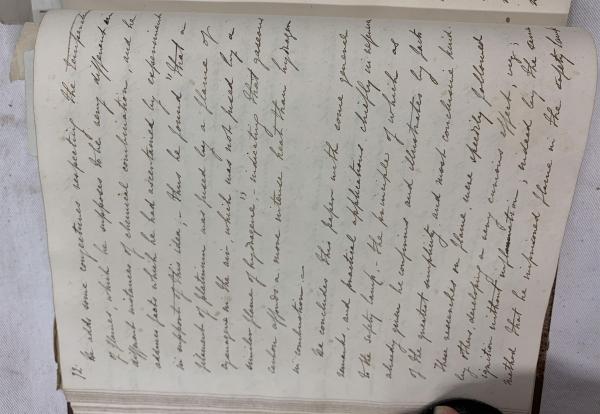 72 He adds some conjectures respecting the temperature
of flames, which he supposes to be very different in
different instances of chemical combination, and he
adduces facts which he had ascertained by experiment
in support of this idea; - thus he found "that a
filament of platinum was fused by a flame of
cyanogen in the air, which was not fused by a
similar flame of hydrogene", indicating that gaseous
carbon affords a more intense heat than hydrogen
in combustion. -
He concludes this paper with some general
remarks and practical applications chiefly in respect
to the safety lamp; the principle of which as
already given he confirms and illustrates by facts
of the greatest simplicity and most conclusive kind.
These researches on flame were speedily followed
by others, developing a very curious effect, viz;
ignition without inflammation; indeed by the same
method that he imprisoned flame in the safety lamp